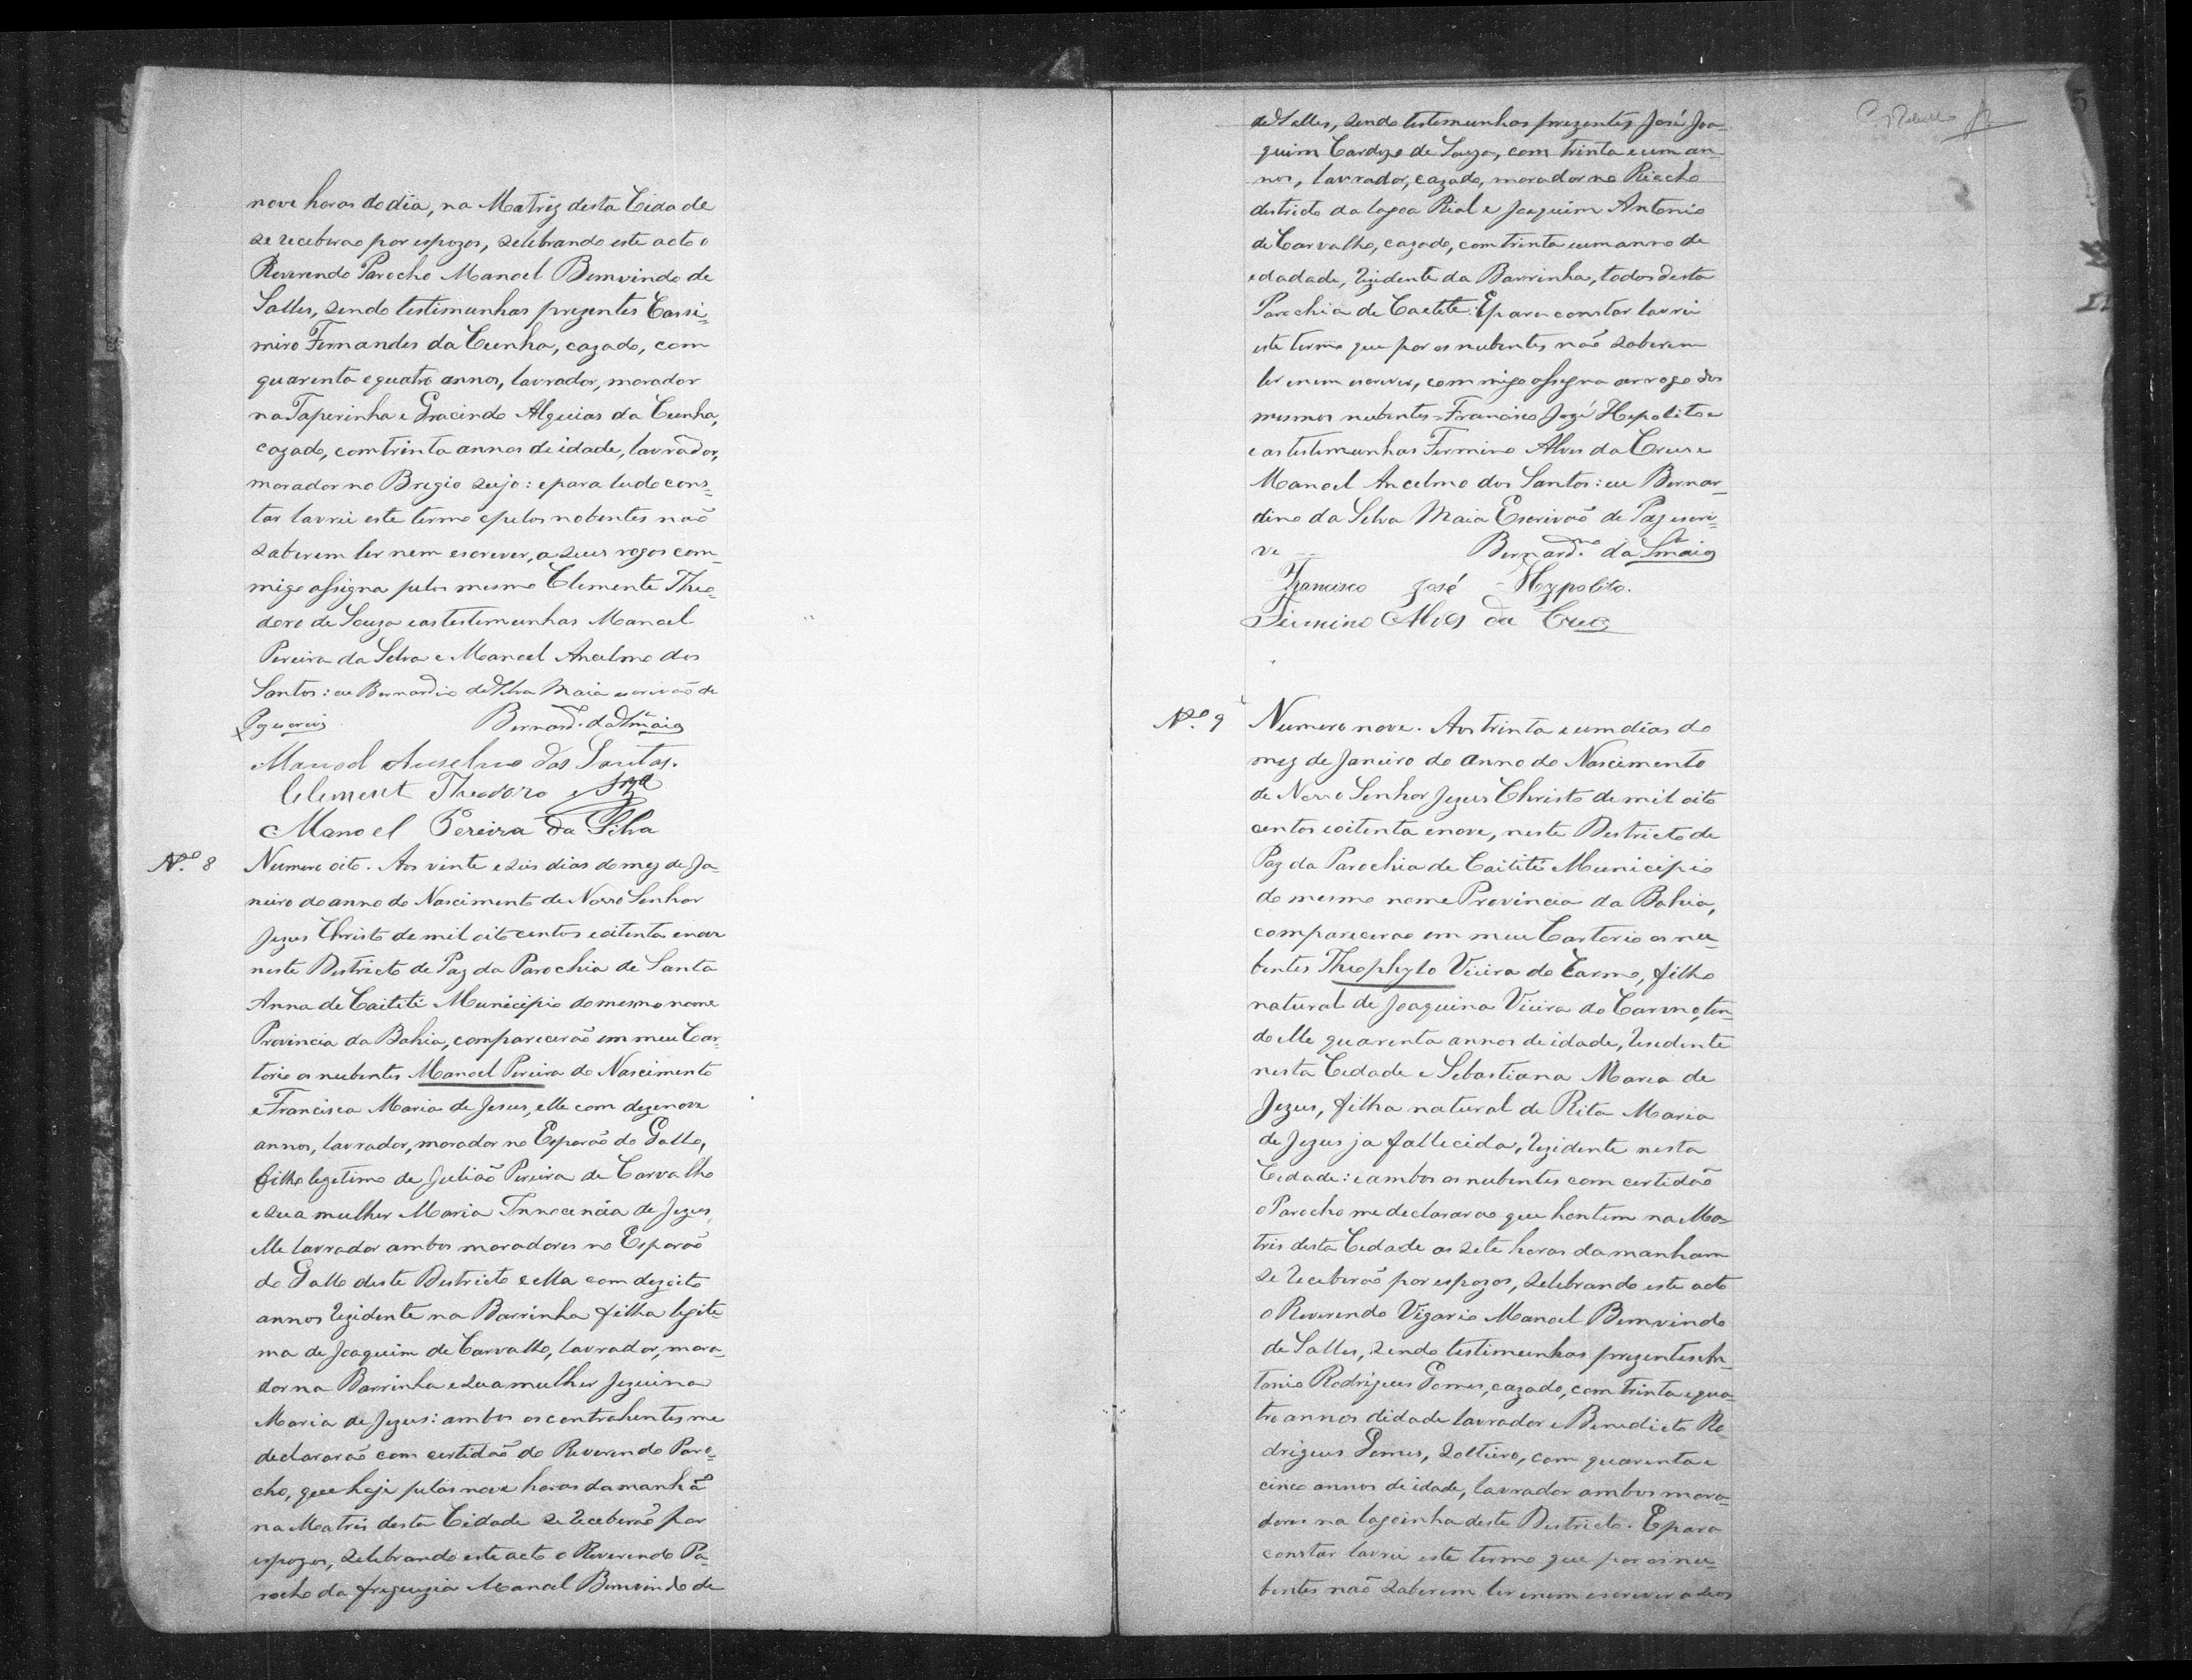 nove horas do dia, na Matriz desta Cidade
se receberao por espozos, selebrando este acto o
Reverendo Parocho Manoel Bemvindo de
Salles, sendo testimunhas prezentes Cassi-
miro Fernandes da Cunha, cazado, com
quarenta e quatro annos, lavrador, morador
na Taperinha e Gracindo Alquias da Cunha,
cazado, com trinta annos de idade, lavrador,
morador no Bregio sujo: e para tudo cons-
tar lavrei este termo e pelos nobentes não
saberem ler nem escrever, a seus rogos com-
migo assigna pelos mesmo Clemente Theo-
doro de Souza e as testemunhas Manoel
Pereira da Selva e Manoel Ancelmo dos
Santos: eu Bernardino da Selva Maia escrivão de
Paz escrevi Bernard.º da Sª Maia
Manoel Anselmo dos Santos.
Clement Theodoro e Sza
Manoel Pereira da Silva
N.º 8 Numero oito. Aos vinte e seis dias do mez de Ja-
neiro do anno do Nascimento de Nosso Senhor
Jezus Christo de mil oito centos e oitenta e nove
neste Destricto de Paz da Parochia de Santa
Anna de Caitité Municipio do mesmo nome
Provincia da Bahia, comparecerão em meu Car-
torio os nubentes Manoel Pereira do Nascimento
e Francisca Maria de Jesus, elle com dezenove
annos, lavrador, morador no Esporão do Gallo,
filho legetimo de Julião Pereira de Carvalho
e sua mulher Maria Innocencia de Jezus,
elle lavrador ambos moradores no Esporão
do Gallo deste Destricto e ella com dezoito
annos rezidente na Barrinha filha legite-
ma de Joaquim de Carvalho, lavrador, mora-
dor na Barrinha e sua mulher Jezuina
Maria de Jezus: ambos os contrahentes me
declararão com certidão do Reverendo Paro-
cho, que hoje pelas nove horas da manhã
na Matris desta Cidade se receberão por
espozos, selebrando este acto o Reverendo Pa-
rocho da freguezia Manoel Bemvindo de
de Salles, sendo testemunhas prezentes José Joa-
quim Cardozo de Souza, com trinta e um an-
nos, lavrador, cazado, morador no Riacho
destricto da lagoa Rial e Joaquim Antonio
de Carvalho, cazado, com trinta e um anno de
edadade, rezidente da Barrinha, todos desta
Parochia de Caeteté: E para constar lavrei
este termo que por os nubentes não saberem
ler e nem escrever, com migo assigna arrogo dos
mesmos nubentes Francisco Jozé Hepolito e
e as testemunhas Fermino Alves da Cruz e
Manoel Ancelmo dos Santos: eu Bernar-
dino da Selva Maia Escrivão de Paz escre-
ve Bernard.no da Sª Maia
Francisco José Hypolito.
Firmino Alves da Cruz
N.º 9 Numero nove. Aos trinta e um dias do
mez de Janeiro do anno do Nascimento
de Nosso Senhor Jezus Christo de mil oito
centos e oitenta e nove, neste Destricto de
Paz da Parochia de Caitité Municipio
do mesmo nome Provincia da Bahia,
comparecerao em meu Cartorio os nu-
bentes Theophylo Vieira do Carmo, filho
natural de Joaquina Vieira do Carmo, ten-
do elle quarenta annos de idade, resedente
nesta Cedade e Sebastiana Maria de
Jezus, filha natural de Rita Maria
de Jezus ja fallecida, rezidente nesta
Cedade: e ambos os nubentes com certidão
o Parocho me declararao que hontem na Ma-
tris desta Cedade as sete horas da manham
se receberão por espozos, selebrando este acto
o Reverendo Vigario Manoel Bemvindo
de Salles, sendo testimunhas prezentes An-
tonio Rodrigues Gomes, cazado, com trinta e qua-
tro annos didade lavrador e Benedicto Ro-
drigues Gomes, solteiro, com quarenta e
cinco annos de idade, lavrador ambos mora-
dores na lagoinha deste Destricto. E para
constar lavrei este termo que por os nu-
bentes não saberem ler e nem escrever a seos